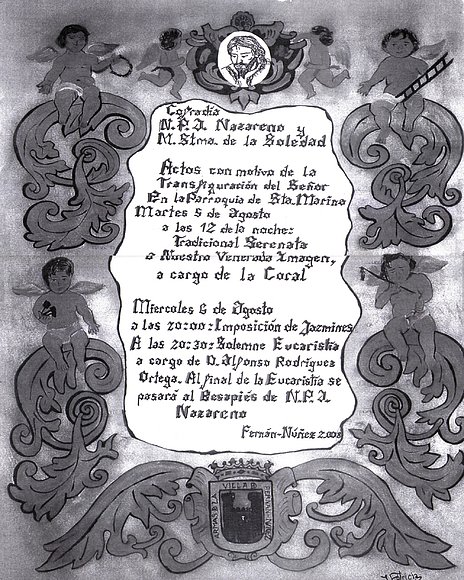 Cofradía
N.P.J. Nazareno y
M. Stma. de la Soledad
Actos con motivo de la
Transfiguración del Señor
En la Parroquia de Sta. Marina
Martes 5 de Agosto
a las 12 de la noche:
Tradicional Serenata
a Nuestro Venerada Imagen,
a cargo de la Coral
Miercoles 6 de Agosto
a las 20:00: Imposición de Jazmines
A las 20:30: Solemne Eucaristia
a cargo de D. Alfonso Rodríguez
Ortega. Al final de la Eucaristia se
pasará al Besapiés de N.P.J.
Nazareno
Fernán-Núñez 2008
ARMAS DE LA
VILLA D